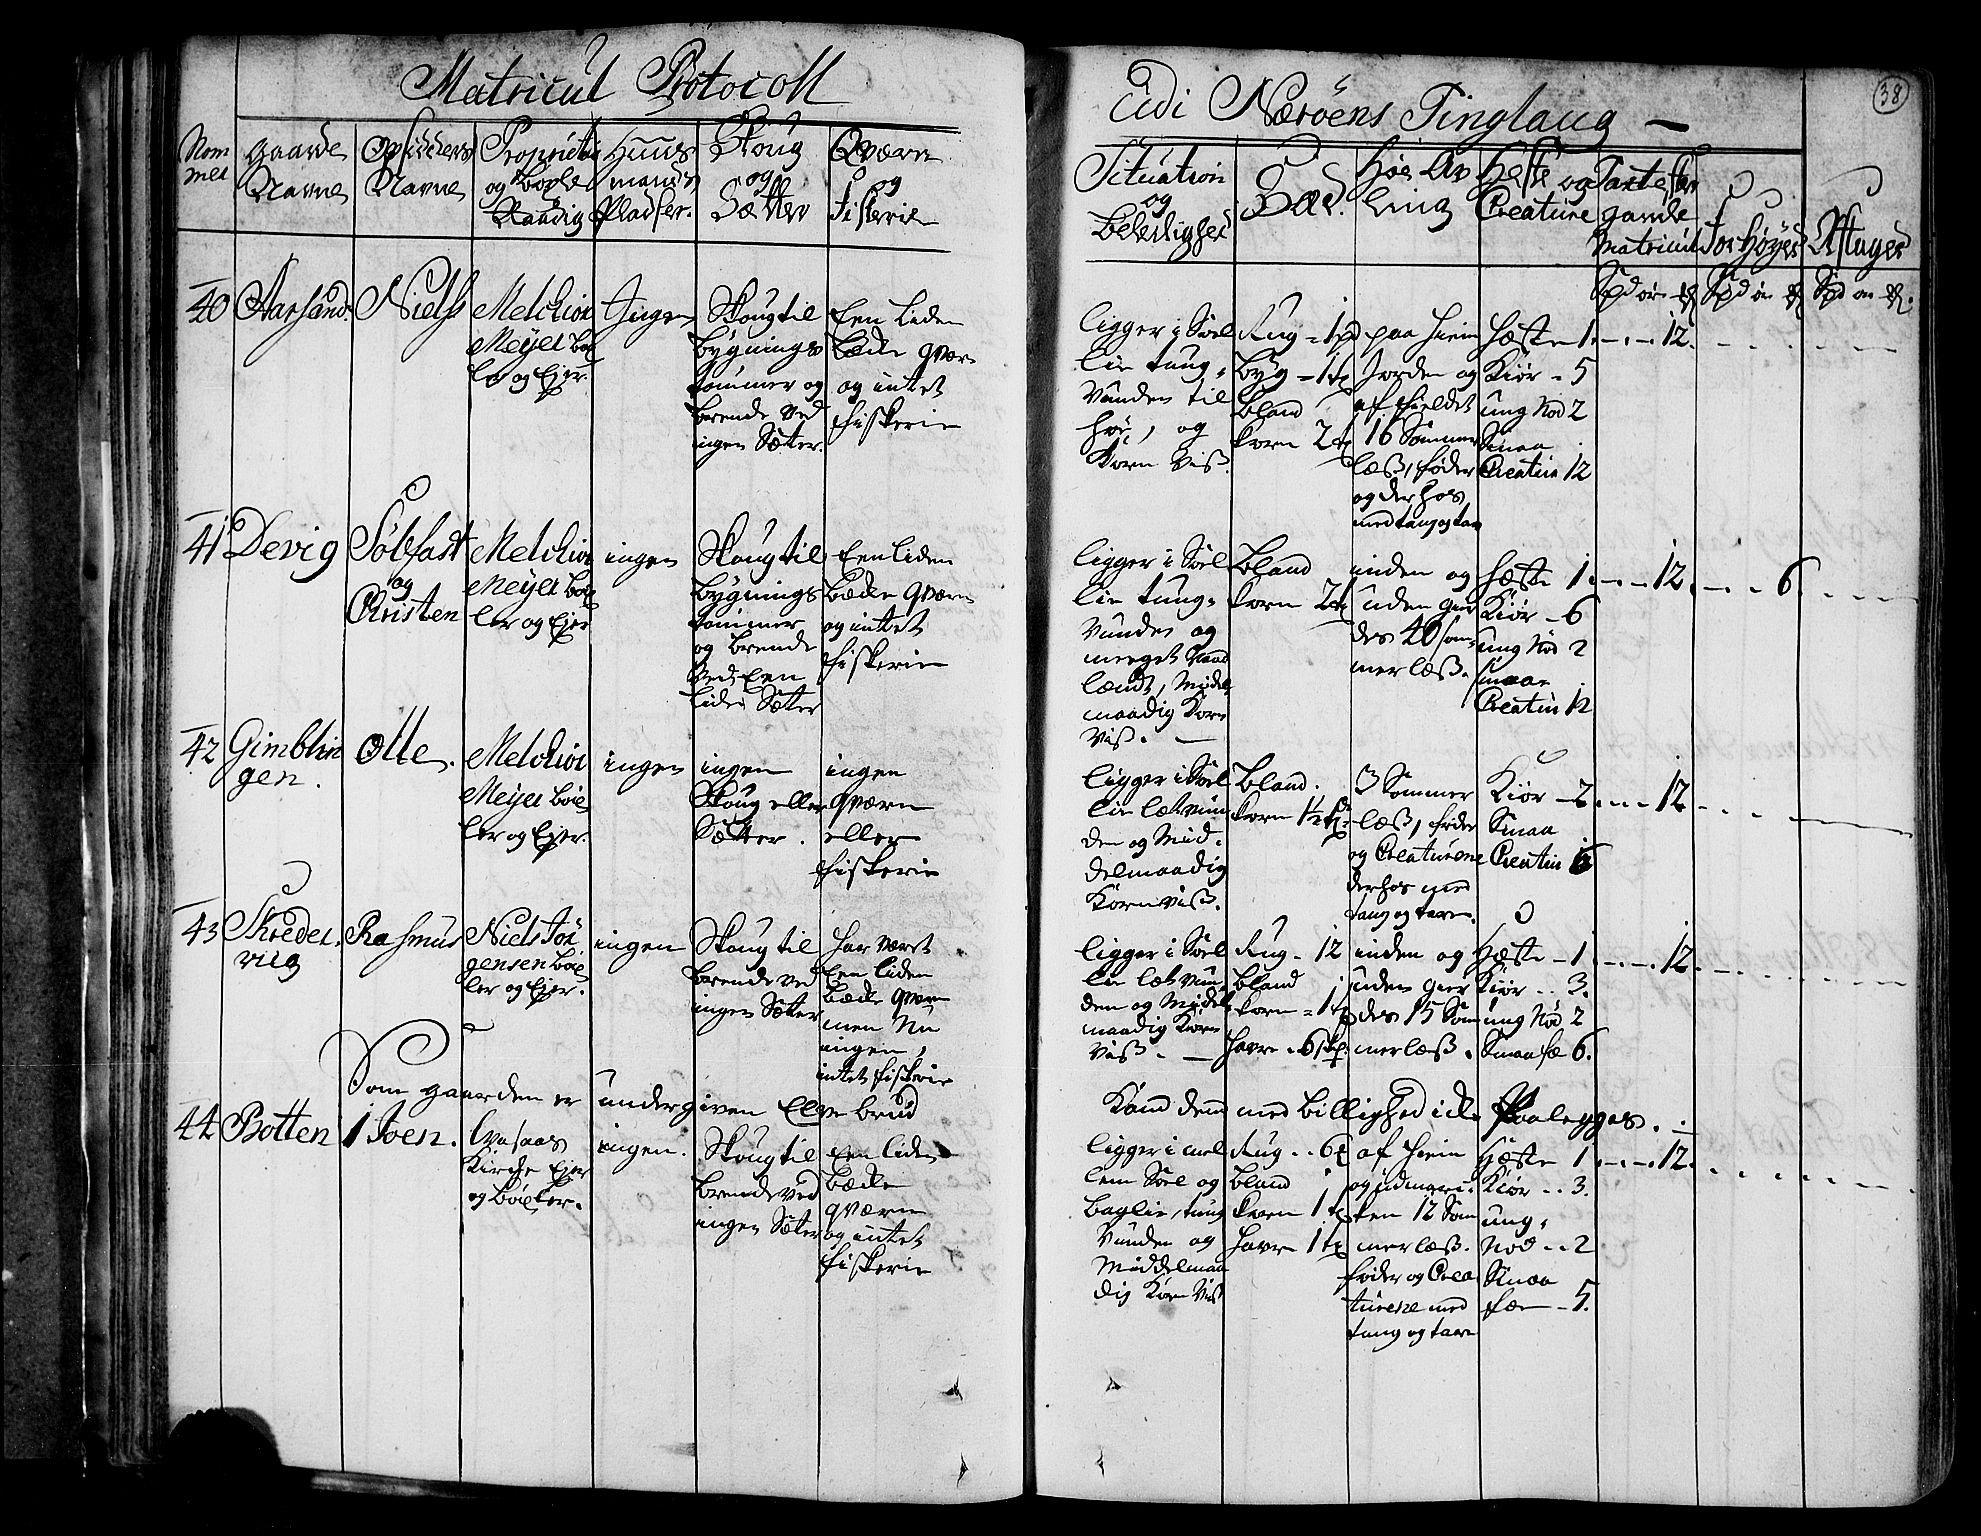 Matricul Protocoll
Udi Nærøens Tinglaug
38
Nom
mer
gaarde
Navne
Opsidders
Navne
Proprietær
og böxle
Raadig
Huus
mands
Pladser.
Skoug
og
Sætter
Qværn
og
Fiskerie
Situation
og
Beleilighed
Sæd.
Höe Av
ling
Heste og
Creature
Taxt efter
gamle
Matricul
Forhøyed
Aftaged
40 Aarsand.
Niels
Melchior
Meyer böx
ler og Ejer.
Ingen
Skoug til
bygnings
tömmer og
brende ved
ingen Sæter.
Een liden
bæche qværn
og intet
fiskerie
ligger i Soel
lie tung-
vunden til
höe, og
Korn viss.
Rug - 1
Byg - 1
bland
korn 2
paa hiem
Jorden og
af fieldet
16 Sommer
læss, föder
og derhos
med tang og tare
Hæste 1
Kiör - 5
ung Nöd 2
Smaa
Creatur 12
12
41 Devig
Sölfast
og
Christen
Melchior
Meyer böx
ler og Ejer
ingen
Skoug til
bygnings
tömmer
og brende
ved, Een
liden Sæter
Een liden
bæche qværn
og intet
fiskerie
ligger i Soel
lie tung-
vunden og
meeget
lændt, Middel
maadig Korn
viss.
bland
korn 2
inden og
uden gier
des 40 som
mer læss.
Hæste 1
Kiör - 6
ung Nöd 2
smaae
Creatur 12
12
6
42 Gimblin
gen.
Olle.
Melchior
Meyer böx
ler og Ejer.
ingen
ingen
Skoug eller
Sætter.
ingen
qværn
eller
fiskerie
ligger i Soel
lie let vun
den og Mid-
delmaadig
Kornviss.
bland.
korn 1 1/2
3 Sommer
læss, föder
og Creaturene
derhos med
tang og tare.
Kiör - 2
Smaa
Creatur 6
12
43 Skreder.
viig
Rasmus
Niels Jör
gensen böx
ler og Ejer.
ingen
Skoug til
brende ved
ingen Sæter
har været
Een liden
bæche qværn
men Nu
ingen,
intet fiskerie
ligger i Soel
lie let vun
den og Middel
maadig Korn
viss.
Rug - 12
bland
korn - 1
havre - 6
inden og
uden gier
des 15 Som
mer læss.
Hæste - 1
Kiör - 3.
ung Nöd 2
Smaa fæ 6.
12
Som gaarden er undergiven Elve brud
Kand dend med billighed icke Paalegges.
44 Botten
1 Joen.
Kirche Ejer
og böxler.
ingen.
Skoug til
brende ved
ingen Sæter
een liden
bæche
qværn
og intet
fiskerie
ligger i mel
lem Soel og
baglie, tung
vunden og
Middelmaa
dig Korn viss
Rug - 6
bland
korn 1
havre 1
af hiem
og udmar-
ken 12 Som
mer læss.
föder og Crea
turene med
tang og tare
Hæste 1
Kiör - 3.
ung-
Nöd - 2
Smaa
fæe - 5.
12